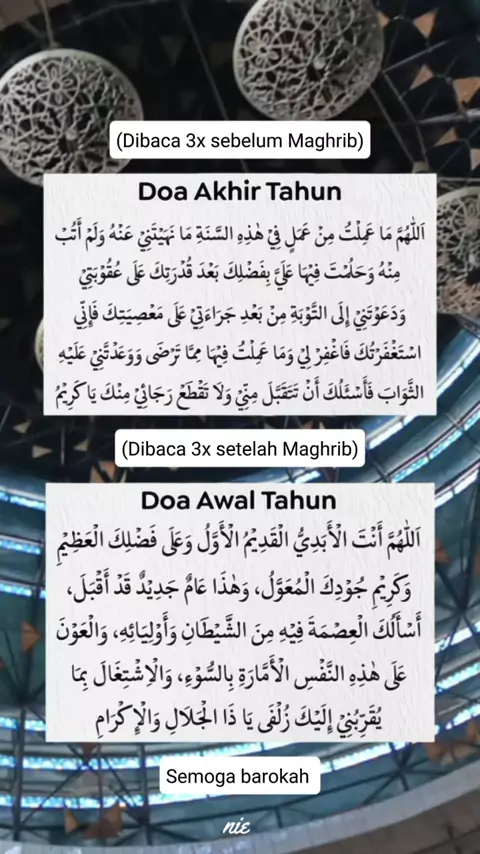 (Dibaca 3x sebelum Maghrib)
Doa Akhir Tahun
اَللّٰهُمَّ مَا عَمِلْتُ مِنْ عَمَلٍ فِيْ هٰذِهِ السَّنَةِ مَا نَهَيْتَنِيْ عَنْهُ وَلَمْ أَتُبْ
مِنْهُ وَحَلُمْتَ فِيْهَا عَلَيَّ بِفَضْلِكَ بَعْدَ قُدْرَتِكَ عَلَى عُقُوْبَتِيْ
وَدَعَوْتَنِيْ إِلَى التَّوْبَةِ مِنْ بَعْدِ جَرَاءَتِيْ عَلَى مَعْصِيَتِكَ فَإِنِّي
اسْتَغْفَرْتُكَ فَاغْفِرْ لِيْ وَمَا عَمِلْتُ فِيْهَا مِمَّا تَرْضَى وَوَعَدْتَّنِيْ عَلَيْهِ
الثَّوَابَ فَأَسْئَلُكَ أَنْ تَتَقَبَّلَ مِنِّيْ وَلَا تَقْطَعْ رَجَائِيْ مِنْكَ يَا كَرِيْمُ
(Dibaca 3x setelah Maghrib)
Doa Awal Tahun
اَللّٰهُمَّ أَنْتَ الْأَبَدِيُّ الْقَدِيْمُ الْأَوَّلُ وَعَلَى فَضْلِكَ الْعَظِيْمِ
وَكَرِيْمِ جُوْدِكَ الْمُعَوَّلُ، وَهٰذَا عَامٌ جَدِيْدٌ قَدْ أَقْبَلَ،
أَسْأَلُكَ الْعِصْمَةَ فِيْهِ مِنَ الشَّيْطَانِ وَأَوْلِيَائِهِ، وَالْعَوْنَ
عَلَى هٰذِهِ النَّفْسِ الْأَمَّارَةِ بِالسُّوْءِ، وَالْاِشْتِغَالَ بِمَا
يُقَرِّبُنِيْ إِلَيْكَ زُلْفَى يَا ذَا الْجَلَالِ وَالْإِكْرَامِ
Semoga barokah
nie